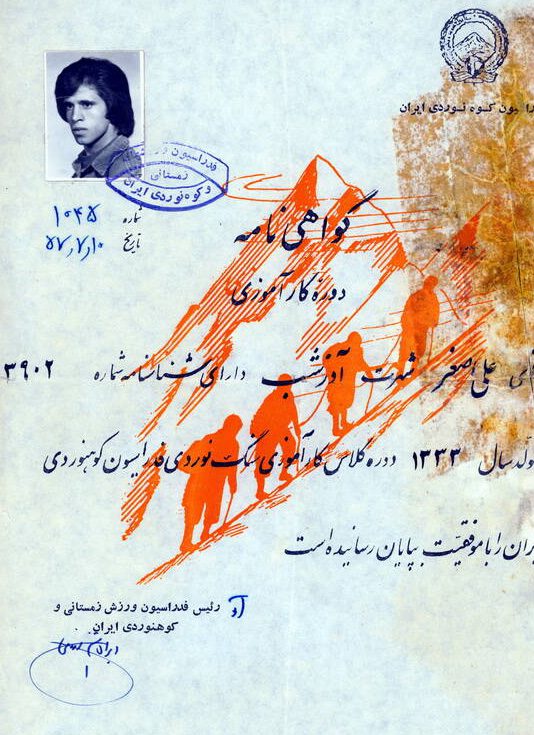 فدراسیون کوه نوردی ایران
فدراسیون ورزش
زمستانی
و کوه نوردی ایران
شماره ۱۰۴۵
تاریخ ۵۷٫۷٫۱۰
گواهی نامه
دوره کارآموزی
آقای علی اصغر شهرت آذرشب دارای شناسنامه شماره ۳۹۰۲
متولد سال ۱۳۳۳ دوره کلاس کارآموزی سنگ نوردی فدراسیون کوهنوردی
ایران را با موفقیت بپایان رسانیده است
رئیس فدراسیون ورزش زمستانی و
کوهنوردی ایران
۱